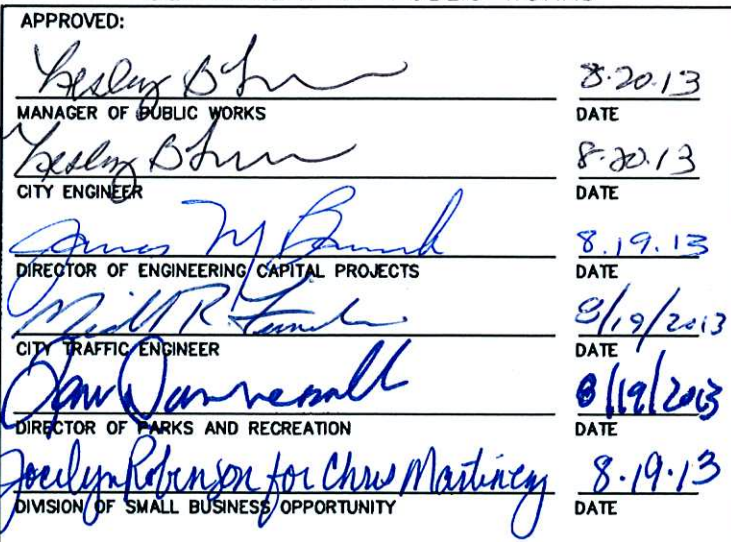 APPROVED:
Lesley B 8.20.13
MANAGER OF PUBLIC WORKS DATE
Lesley B 8.20.13
CITY ENGINEER DATE
James M 8.19.13
DIRECTOR OF ENGINEERING CAPITAL PROJECTS DATE
R 8/19/2013
CITY TRAFFIC ENGINEER DATE
8/19/2013
DIRECTOR OF PARKS AND RECREATION DATE
Jocelyn Robinson for Chris Martinez 8.19.13
DIVISION OF SMALL BUSINESS OPPORTUNITY DATE